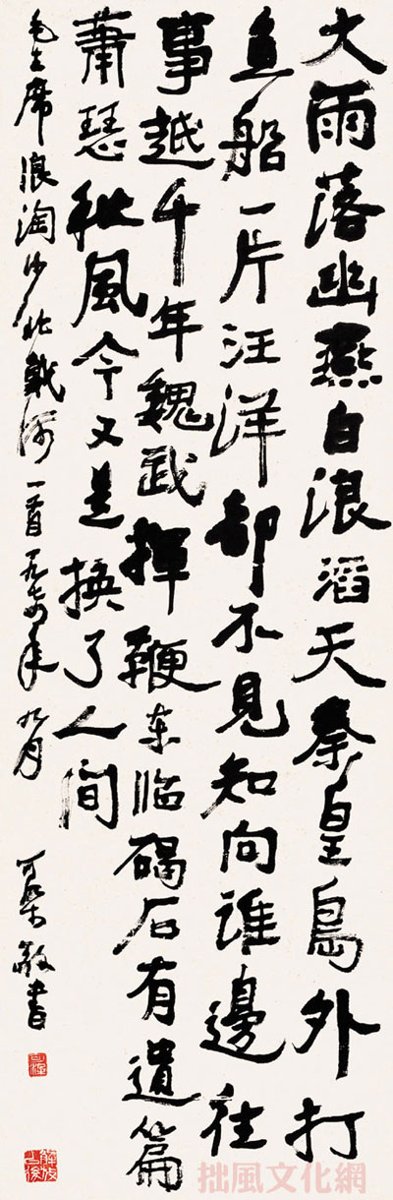 大雨落幽燕白浪滔天秦皇島外打
鱼船一片汪洋都不見知向誰邊往
事越千年魏武揮鞭东临碣石有遺篇
蕭瑟秋風今又是換了人間
毛主席浪淘沙北戴河一首一九七六年九月 可染敬書
拙風文化網